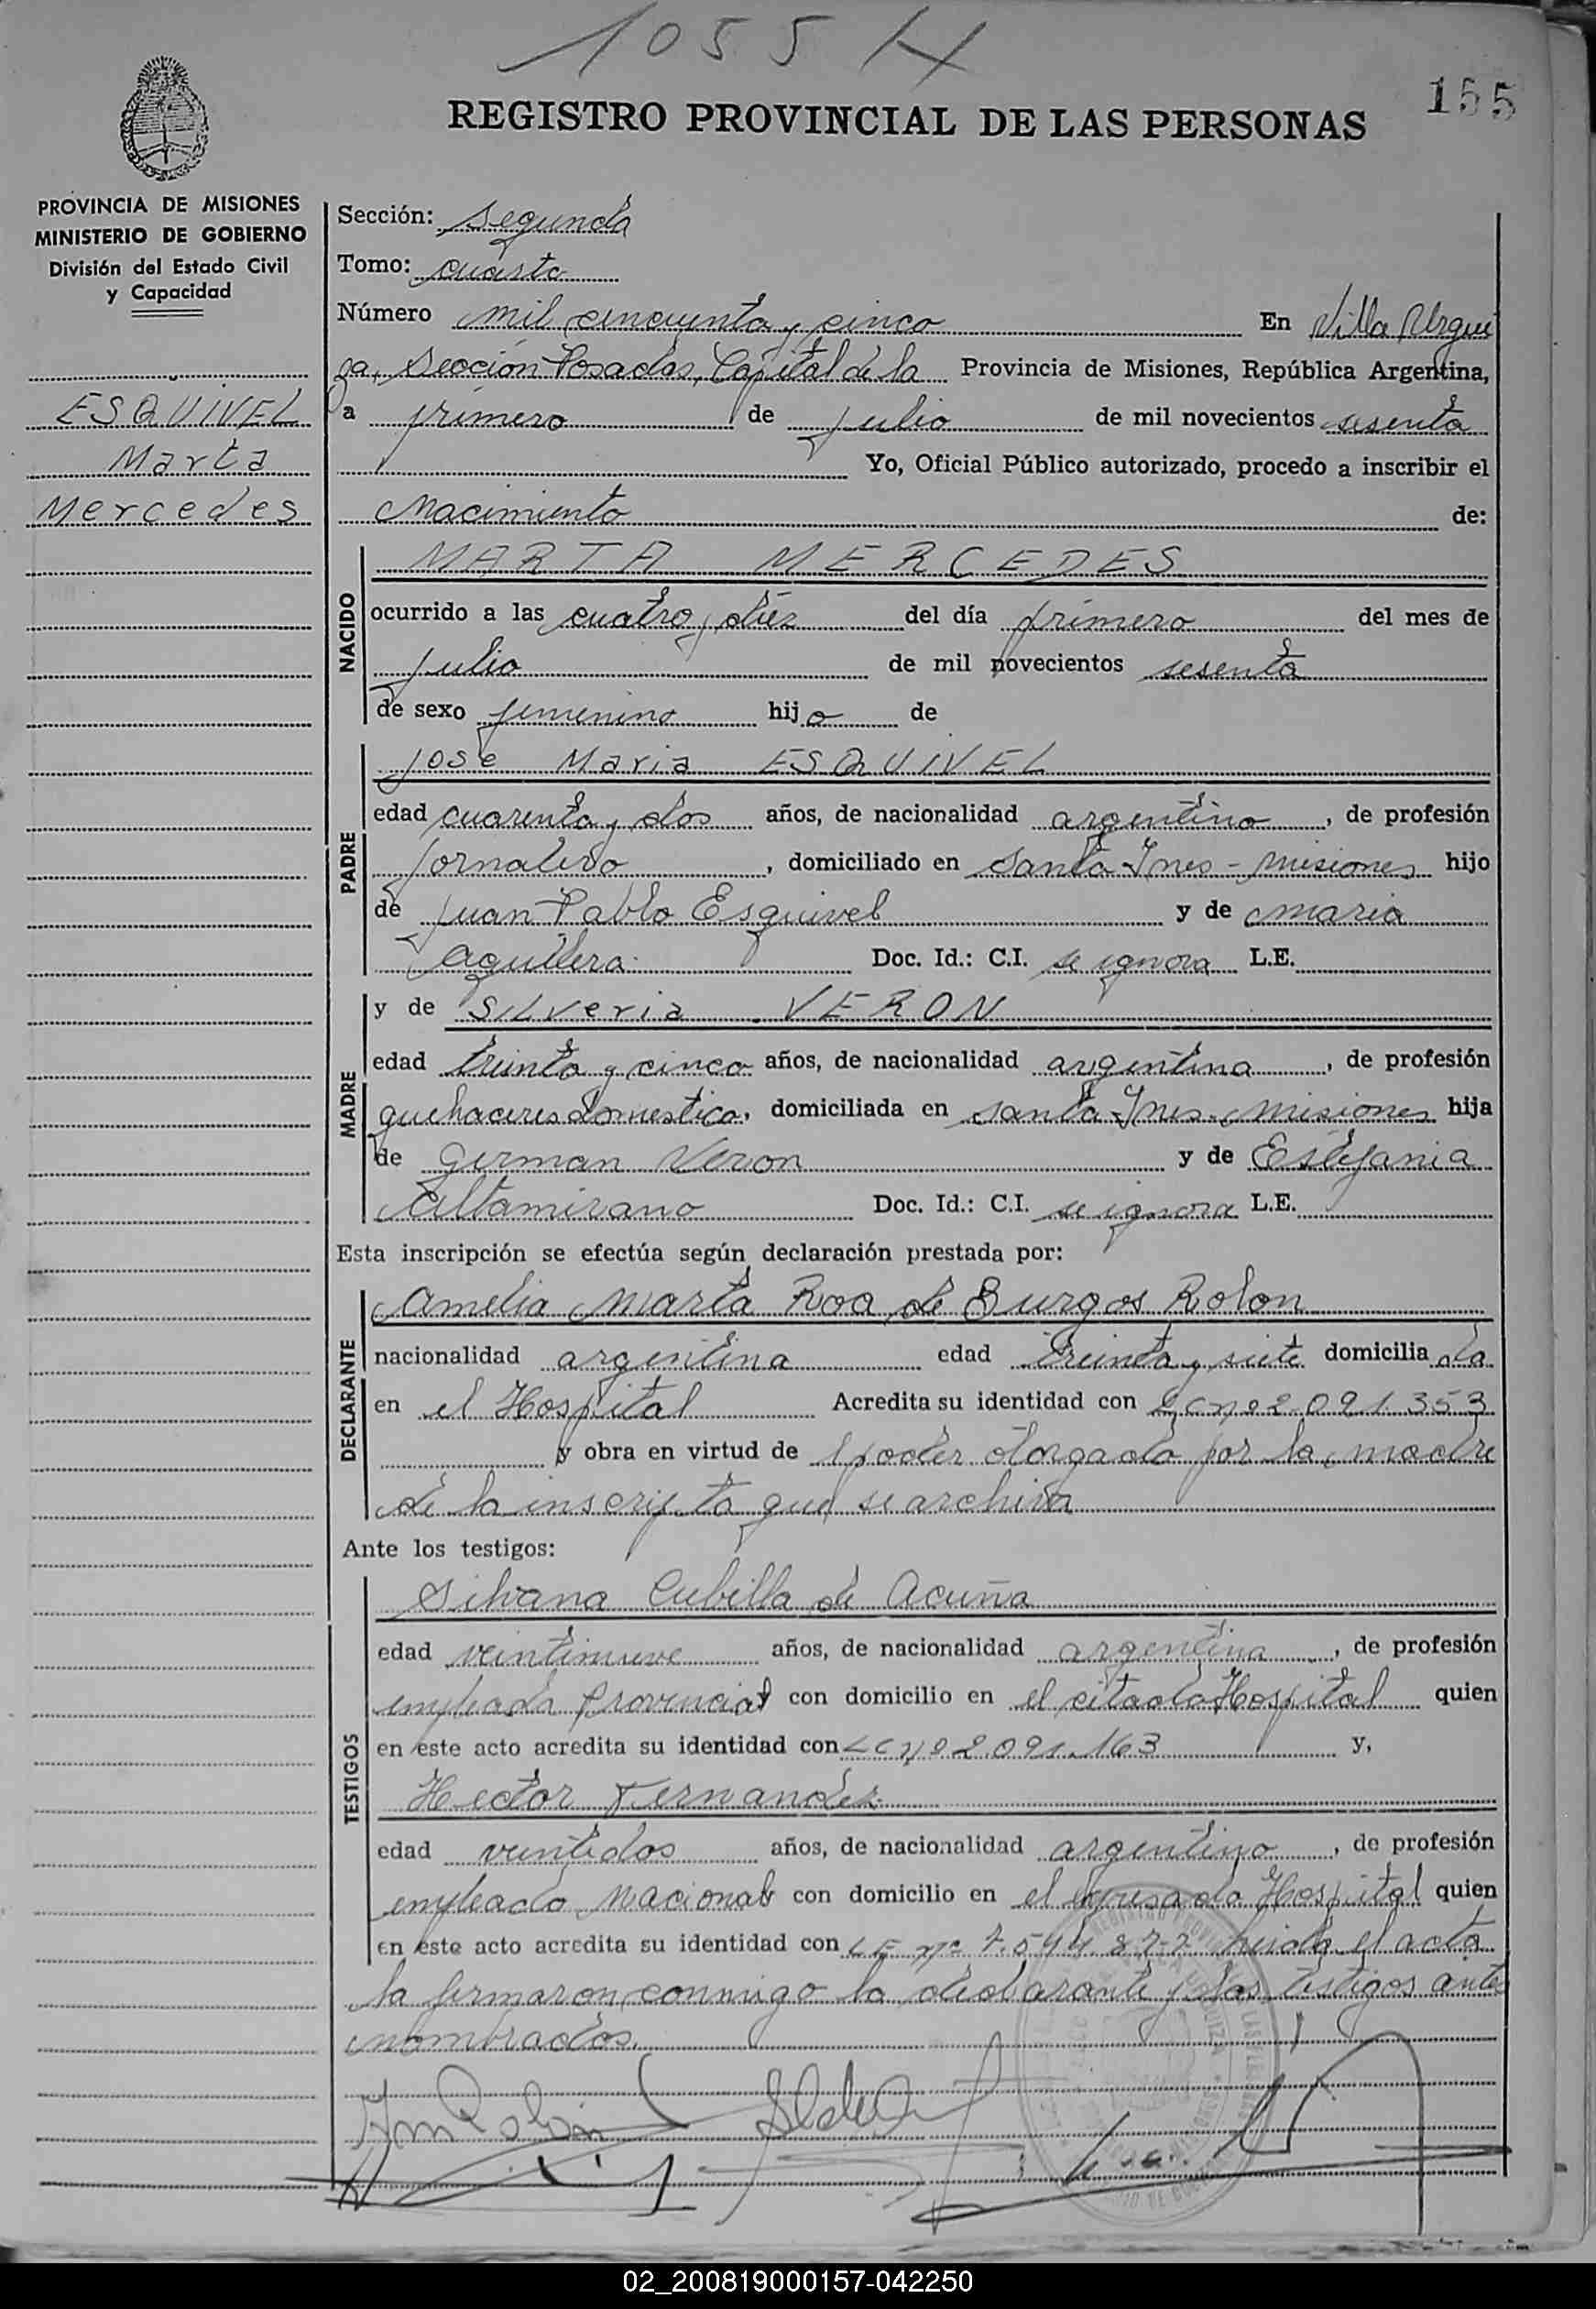 1055 H
155
REGISTRO PROVINCIAL DE LAS PERSONAS
PROVINCIA DE MISIONES
MINISTERIO DE GOBIERNO
División del Estado Civil
y Capacidad
ESQUIVEL
Marta
Mercedes
Sección: segunda
Tomo: cuarto
Número mil cincuenta y cinco En Villa Urqui
za, Sección Posadas, Capital de la Provincia de Misiones, República Argentina,
a primero de julio de mil novecientos sesenta
Yo, Oficial Público autorizado, procedo a inscribir el
Nacimiento de:
NACIDO
MARTA MERCEDES
ocurrido a las cuatro y diez del día primero del mes de
julio de mil novecientos sesenta
de sexo femenino hijo de
PADRE
José Maria ESQUIVEL
edad cuarenta y dos años, de nacionalidad argentino, de profesión
jornalero, domiciliado en Santa Ines - Misiones hijo
de Juan Pablo Esquivel y de Maria
Aguilera. Doc. Id.: C.I. se ignora L.E.
MADRE
y de SILVeria VERON
edad treinta y cinco años, de nacionalidad argentina, de profesión
quehaceres domestico, domiciliada en Santa Ines - Misiones hija
de German Veron y de Estefania
Altamirano Doc. Id.: C.I. se ignora L.E.
Esta inscripción se efectúa según declaración prestada por:
DECLARANTE
Amelia Marta Roa de Burgos Rolon
nacionalidad argentina edad treinta y siete domicilia da
en el Hospital Acredita su identidad con LC nº 2.091.353
y obra en virtud de l poder otorgado por la madre
de la inscripta que se archiva
Ante los testigos:
TESTIGOS
Silvana Cubilla de Acuña
edad veintinueve años, de nacionalidad argentina, de profesión
empleada provincial con domicilio en el citado Hospital quien
en este acto acredita su identidad con LC nº 2.091.163 y,
Hector Fernandez
edad veintidos años, de nacionalidad argentino, de profesión
empleado nacional con domicilio en el expresado Hospital quien
en este acto acredita su identidad con LE nº 7.544.877 leida el acta
la firmaron conmigo la declarante y los testigos ante
nombrados.
02_200819000157-042250